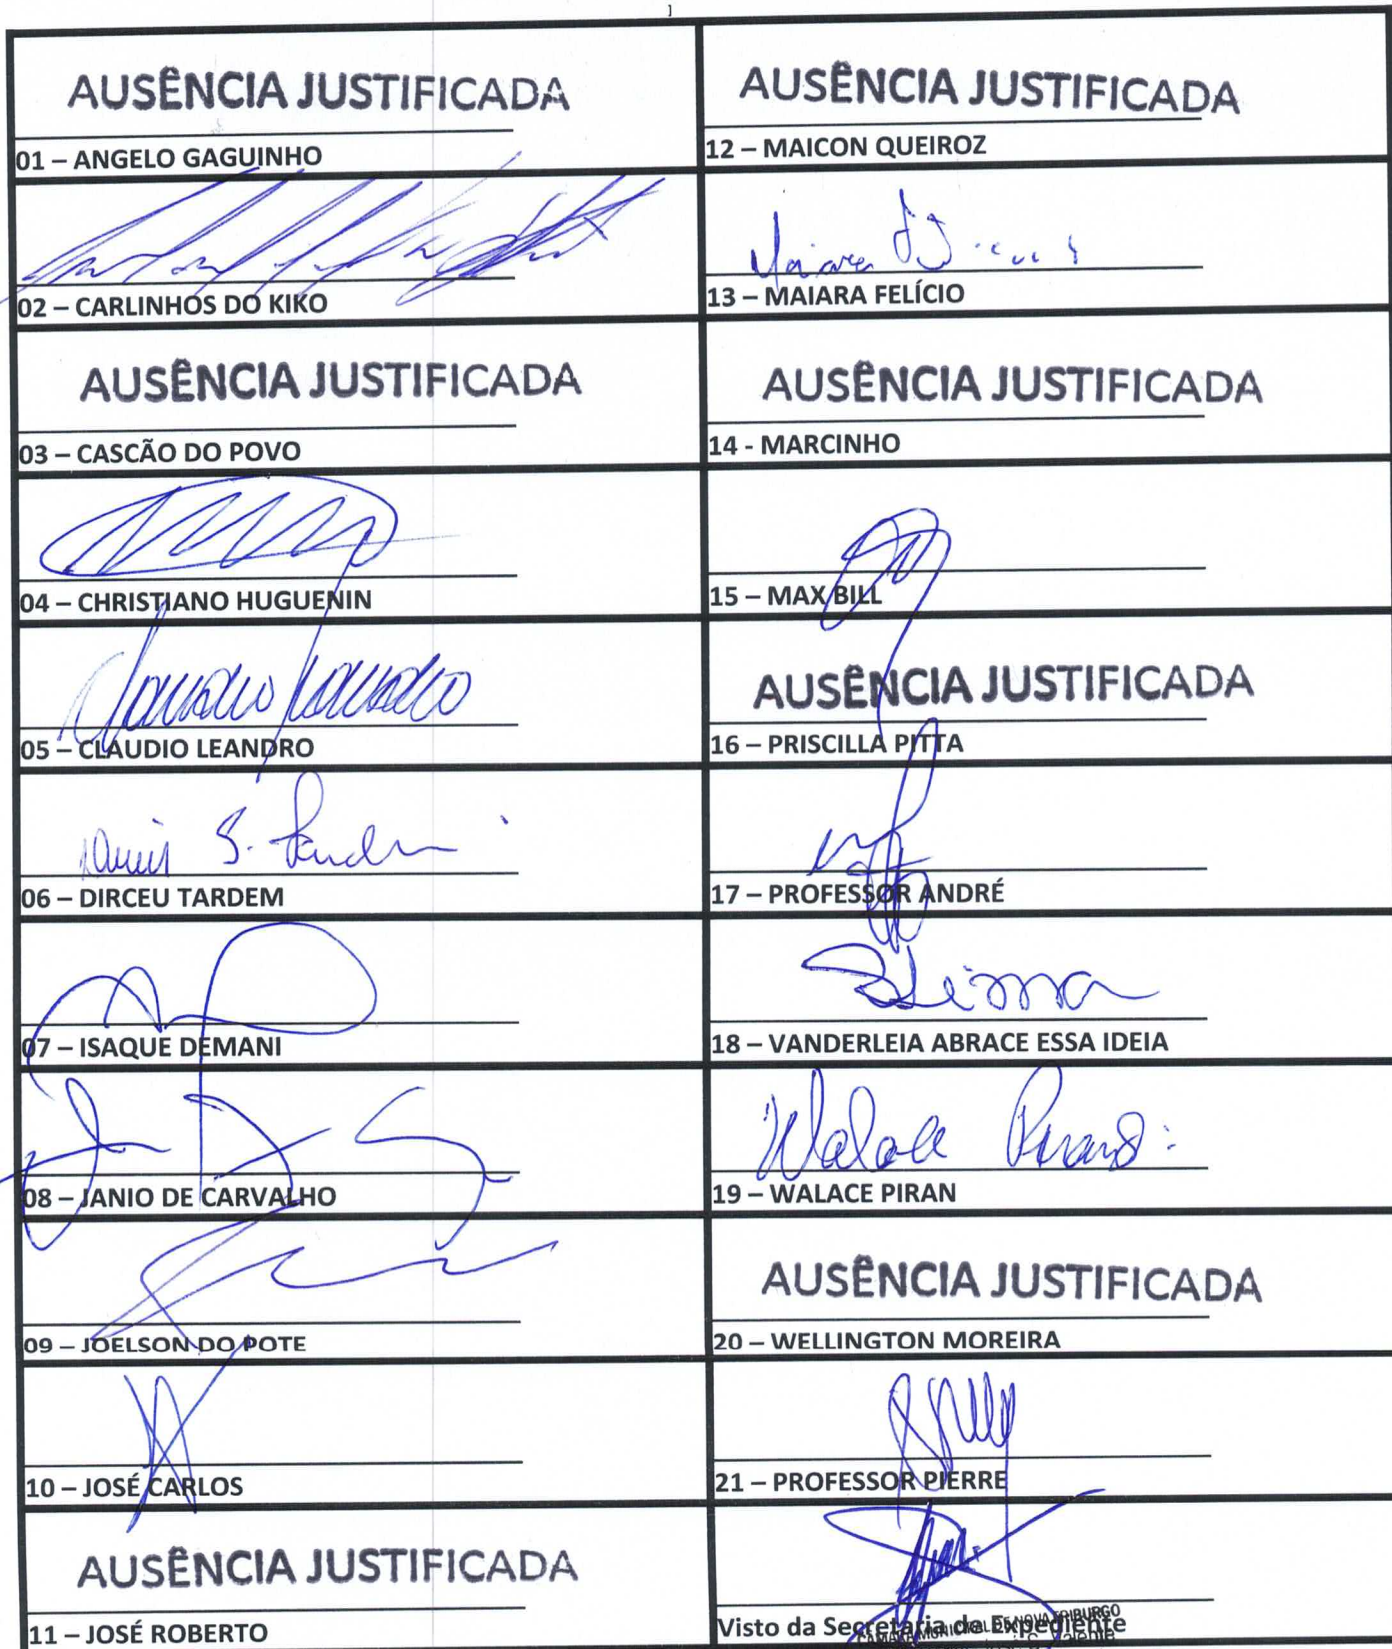 AUSÊNCIA JUSTIFICADA
01 – ANGELO GAGUINHO
02 – CARLINHOS DO KIKO
AUSÊNCIA JUSTIFICADA
03 – CASCÃO DO POVO
04 – CHRISTIANO HUGUENIN
Claudio Leandro
05 – CLAUDIO LEANDRO
06 – DIRCEU TARDEM
07 – ISAQUE DEMANI
08 – JANIO DE CARVALHO
09 – JOELSON DO POTE
10 – JOSÉ CARLOS
AUSÊNCIA JUSTIFICADA
11 – JOSÉ ROBERTO
AUSÊNCIA JUSTIFICADA
12 – MAICON QUEIROZ
Maiara
13 – MAIARA FELÍCIO
AUSÊNCIA JUSTIFICADA
14 - MARCINHO
15 – MAX BILL
AUSÊNCIA JUSTIFICADA
16 – PRISCILLA PITTA
17 – PROFESSOR ANDRÉ
18 – VANDERLEIA ABRACE ESSA IDEIA
Walace Piran
19 – WALACE PIRAN
AUSÊNCIA JUSTIFICADA
20 – WELLINGTON MOREIRA
21 – PROFESSOR PIERRE
Visto da Secretaria de Expediente
CÂMARA MUNICIPAL DE NOVA FRIBURGO
Valente